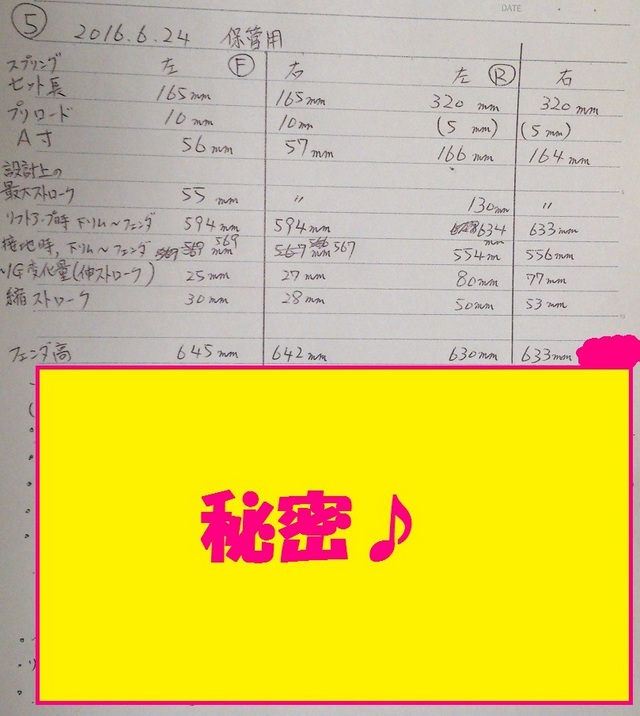 DATE
⑤ 2016.6.24 保管用
スプリング 左 Ⓕ 右 左 Ⓡ 右
セット長 165mm 165mm 320mm 320mm
プリロード 10mm 10mm (5mm) (5mm)
A寸 56mm 57mm 166mm 164mm
設計上の
最大ストローク 55mm 〃 130mm 〃
リフトアップ時 下リム〜フェンダ 594mm 594mm 634mm 633mm
接地時、下リム〜フェンダ 569 569 569mm 567 566mm 567 554m 556mm
1G変化量(伸ストローク) 25mm 27mm 80mm 77mm
縮ストローク 30mm 28mm 50mm 53mm
フェンダ高 645mm 642mm 630mm 633mm
秘密♪